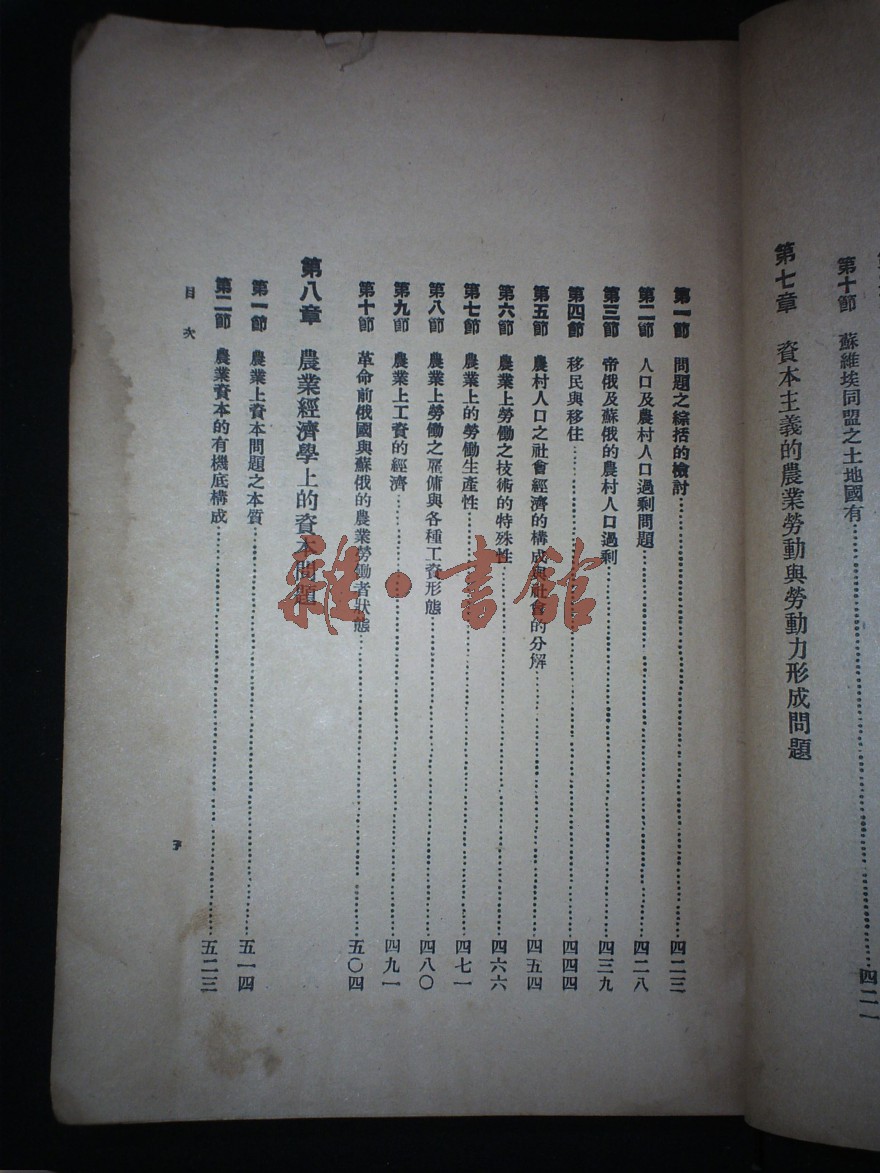 第十節 蘇維埃同盟之土地國有……四二一
第七章 資本主義的農業勞動與勞動力形成問題
第一節 問題之綜括的檢討……四二三
第二節 人口及農村人口過剩問題……四二八
第三節 帝俄及蘇俄的農村人口過剩……四三九
第四節 移民與移住……四四四
第五節 農村人口之社會經濟的構成與社會的分解……四五四
第六節 農業上勞働之技術的特殊性……四六六
第七節 農業上的勞働生產性……四七一
第八節 農業上勞働之雇傭與各種工資形態……四八〇
第九節 農業上工資的經濟……四九一
第十節 革命前俄國與蘇俄的農業勞働者狀態……五〇四
第八章 農業經濟學上的資本問題
第一節 農業上資本問題之本質……五一四
第二節 農業資本的有機底構成……五二三
目次
雜·書館